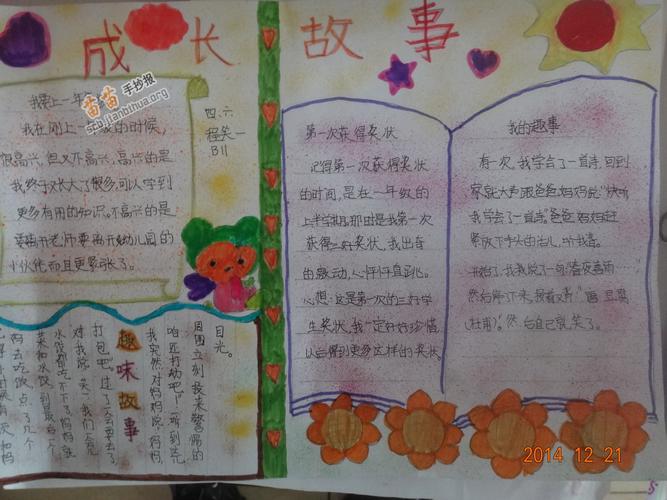 成长故事
苗苗手抄报
scb.jianbihua.org
四、六
程笑一
B11
我要上一年
我在刚上一 级的时候,
很高兴,但又不高兴,高兴的是
我终于长大了很多,可以学到
更多有用的知识。不高兴的是
要离开老师要离开幼儿园的
小伙伴而且更紧张了。
第一次获得奖状
记得第一次获得奖状
的时间,是在一年级的
上半学期,那由是我第一次
获得三好奖状,我出奇
的激动,心怦怦直跳。
心想:这是第一次的三好学
生奖状,我一定好好珍惜,
以后得到更多这样的奖状
我的趣事
有一次,我学会了一首诗,回到
家就大声跟爸爸妈妈说:“快听
我学会了一首诗,”爸爸妈妈赶
紧放下手头的活儿,听我言。
开始了,我我说了一句“春夜喜雨
然后停下来,接着又背:“画 豆腐
(杜甫)。”然后自己就笑了。
趣味故事
目光。
周围立刻投来惊讶的
咱还打劫吧!”听到完,
我突然对妈妈说:“妈妈,
打包吧。”过了一会要去了,
对我说:“笑一我们
水饺都吃不下了妈妈就
菜和水饺,到最后
妈去吃饭,点了几个
2014 12 21